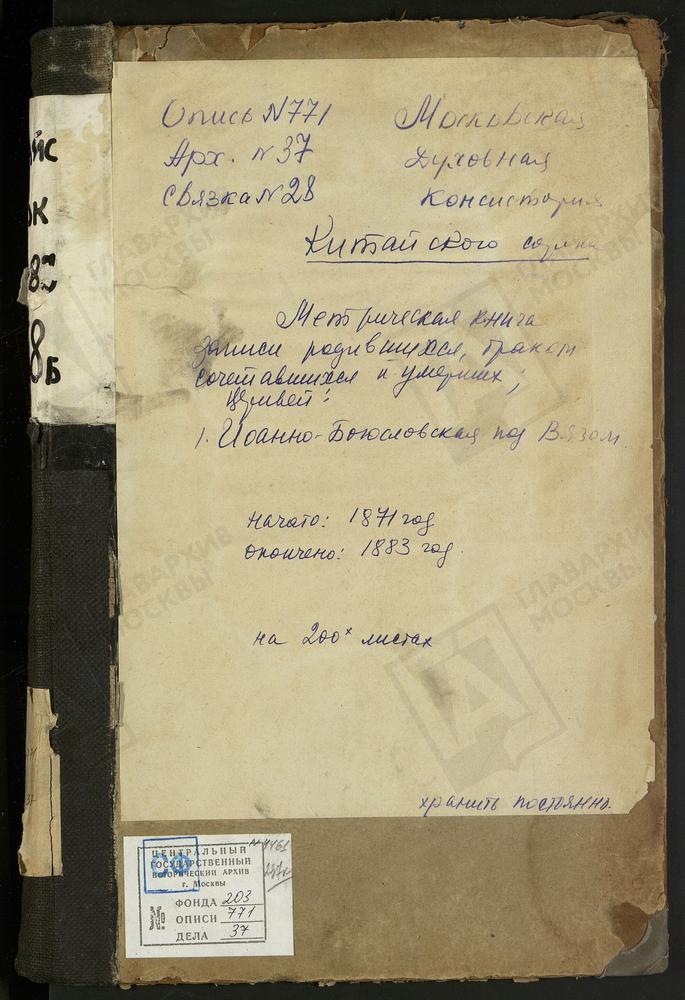 Опись N 771
Московская
Арх. N 37
Духовная
Связка N 28
Консистория
Китайского сорока
Метрическая книга
записи родившихся, браком
сочетавшихся и умерших;
церквей:
1. Иоанно-Богословская под Вязом.
начато: 1871 год
окончено: 1883 год.
на 200х листах
хранить постоянно.
ЦЕНТРАЛЬНЫЙ
ГОСУДАРСТВЕННЫЙ
ИСТОРИЧЕСКИЙ АРХИВ
г. Москвы
СФ
№
ФОНДА 203
ОПИСИ 771
ДЕЛА 37
8Б
ГЛАВАРХИВ
МОСКВЫ
ГЛАВАРХИВ
МОСКВЫ